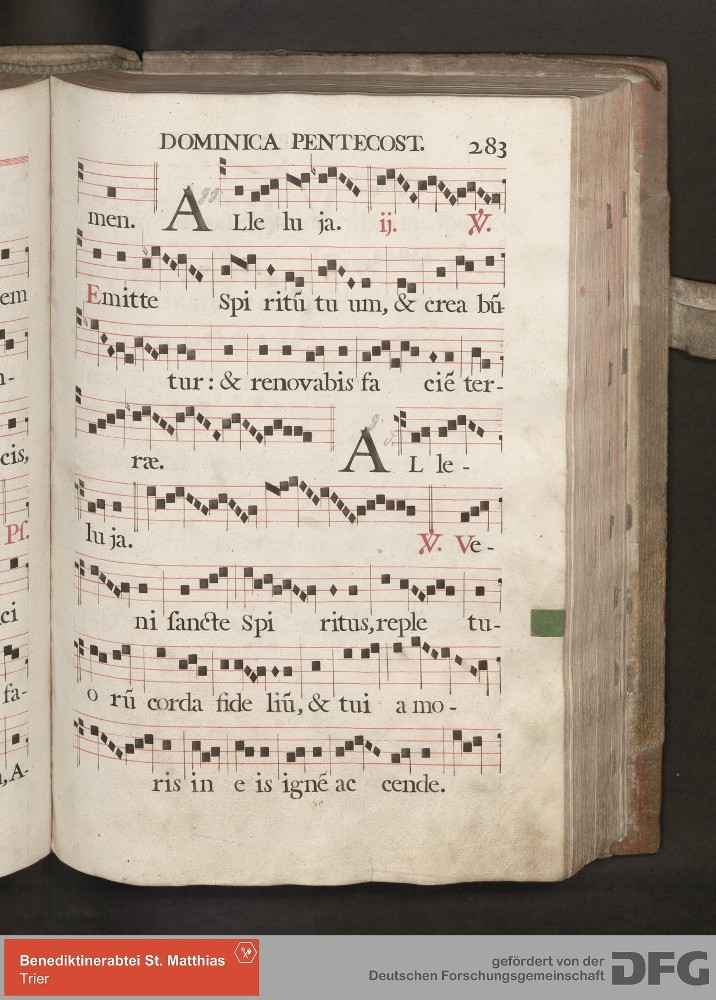 DOMINICA PENTECOST. 283
men. ALle lu ja. ij. ℣.
em
Emitte Spi ritū tu um, & crea bū-
tur: & renovabis fa ciē ter-
ræ. AL le-
cis,
lu ja. ℣. Ve-
Pſ.
ni ſancte Spi ritus, reple tu-
ci
o rū corda fide liū, & tui a mo-
fa-
ris in e is ignē ac cende.
, A-
Benediktinerabtei St. Matthias
Trier
gefördert von der
Deutschen Forschungsgemeinschaft DFG